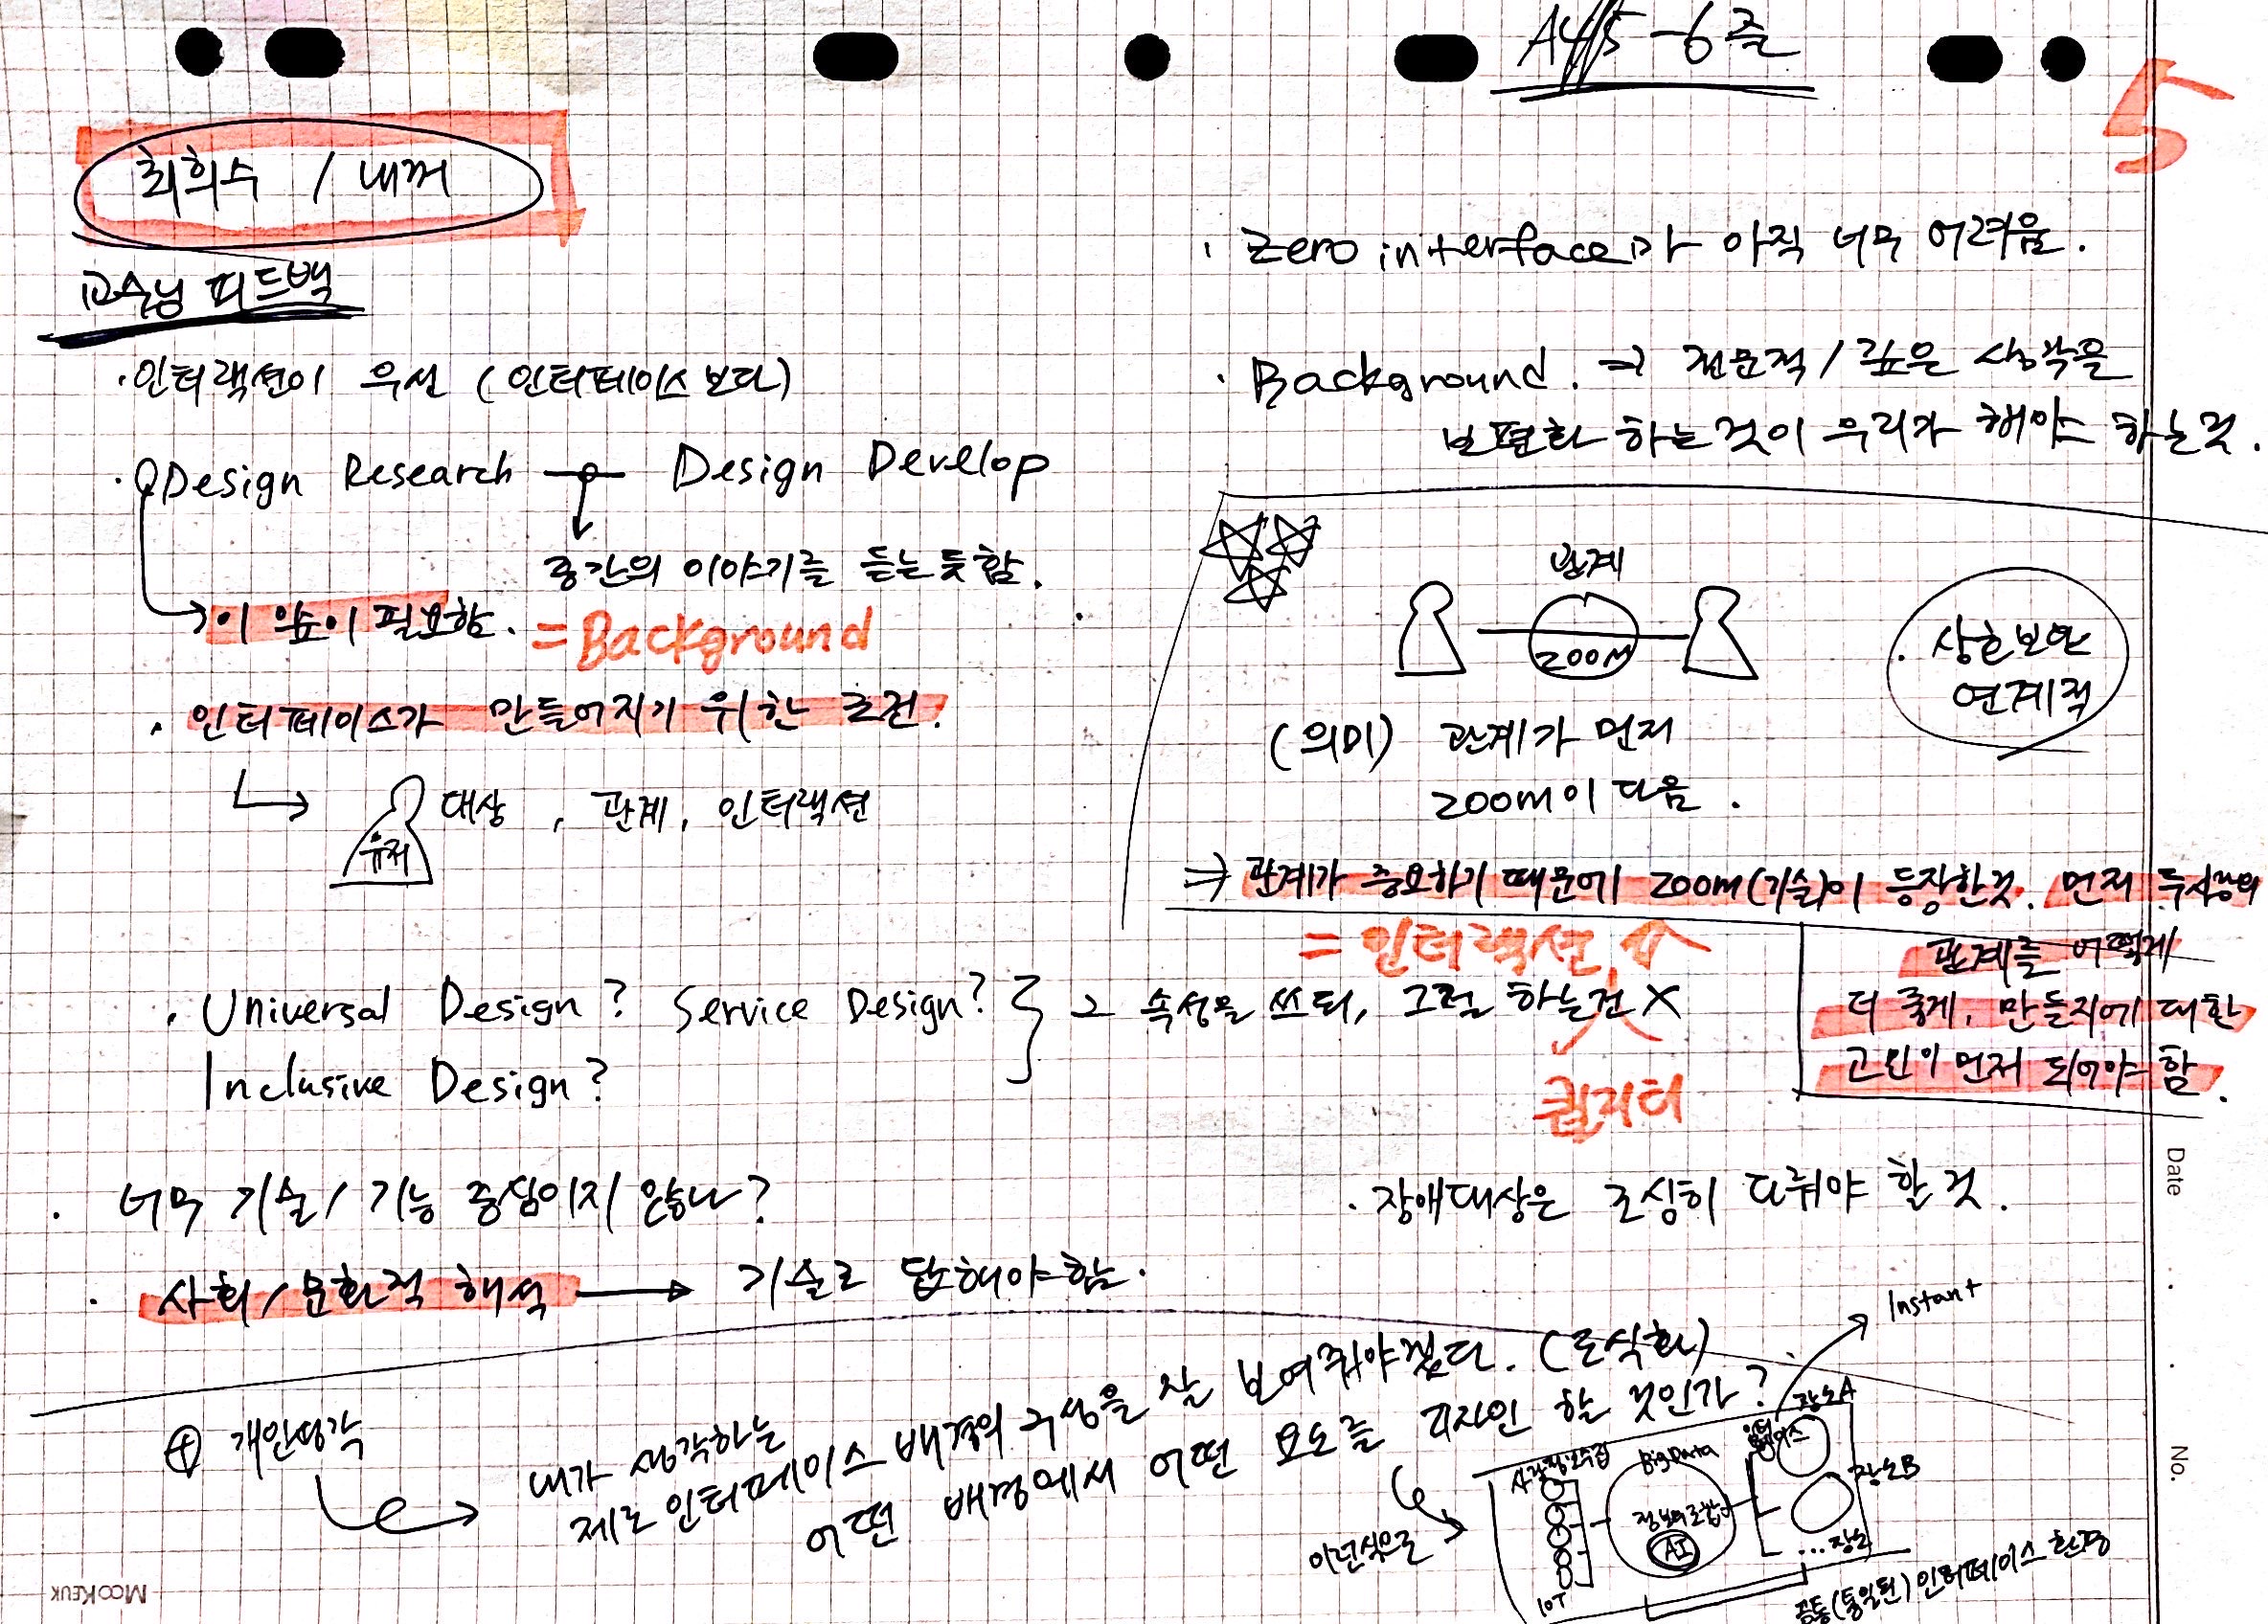 -6주
5
최희수 / 내꺼
교수님 피드백
· 인터랙션이 우선 (인터페이스보다)
· Design Research — Design Develop
중간의 이야기를 듣는 듯함.
이 앞이 필요함. = Background
· 인터페이스가 만들어지기 위한 조건.
유저 대상, 관계, 인터랙션
· Universal Design? Service Design?
Inclusive Design?
그 속성을 쓰되, 그걸 하는건 X
· 너무 기술/기능 중심이지 않나?
· 사회/문화적 해석 → 기술로 답해야함.
· Zero interface가 아직 너무 어려움.
· Background. ⇒ 전문적/깊은 생각을
보편화 하는것이 우리가 해야 하는것.
관계
ZOOM
· 상호보완
연계적
(의미) 관계가 먼저
zoom이 다음.
⇒ 관계가 중요하기 때문에 zoom(기술)이 등장한것. 먼저 두사람의
관계를 어떻게
더 좋게, 만들지에 대한
고민이 먼저 되어야 함.
= 인터랙션
퀄리티
· 장애대상은 조심히 다뤄야 할 것.
⊕ 개인생각
내가 생각하는
제로 인터페이스 배경의 구성을 잘 보여줘야겠다. (도식화)
어떤 배경에서 어떤 요소를 디자인 할 것인가?
이런식으로
IoT
BigData
정보의 조합
AI
인터페이스
Instant
장소A
장소B
... 장소
공통(통일된) 인터페이스 환경
Date
No.
MOOKEUK